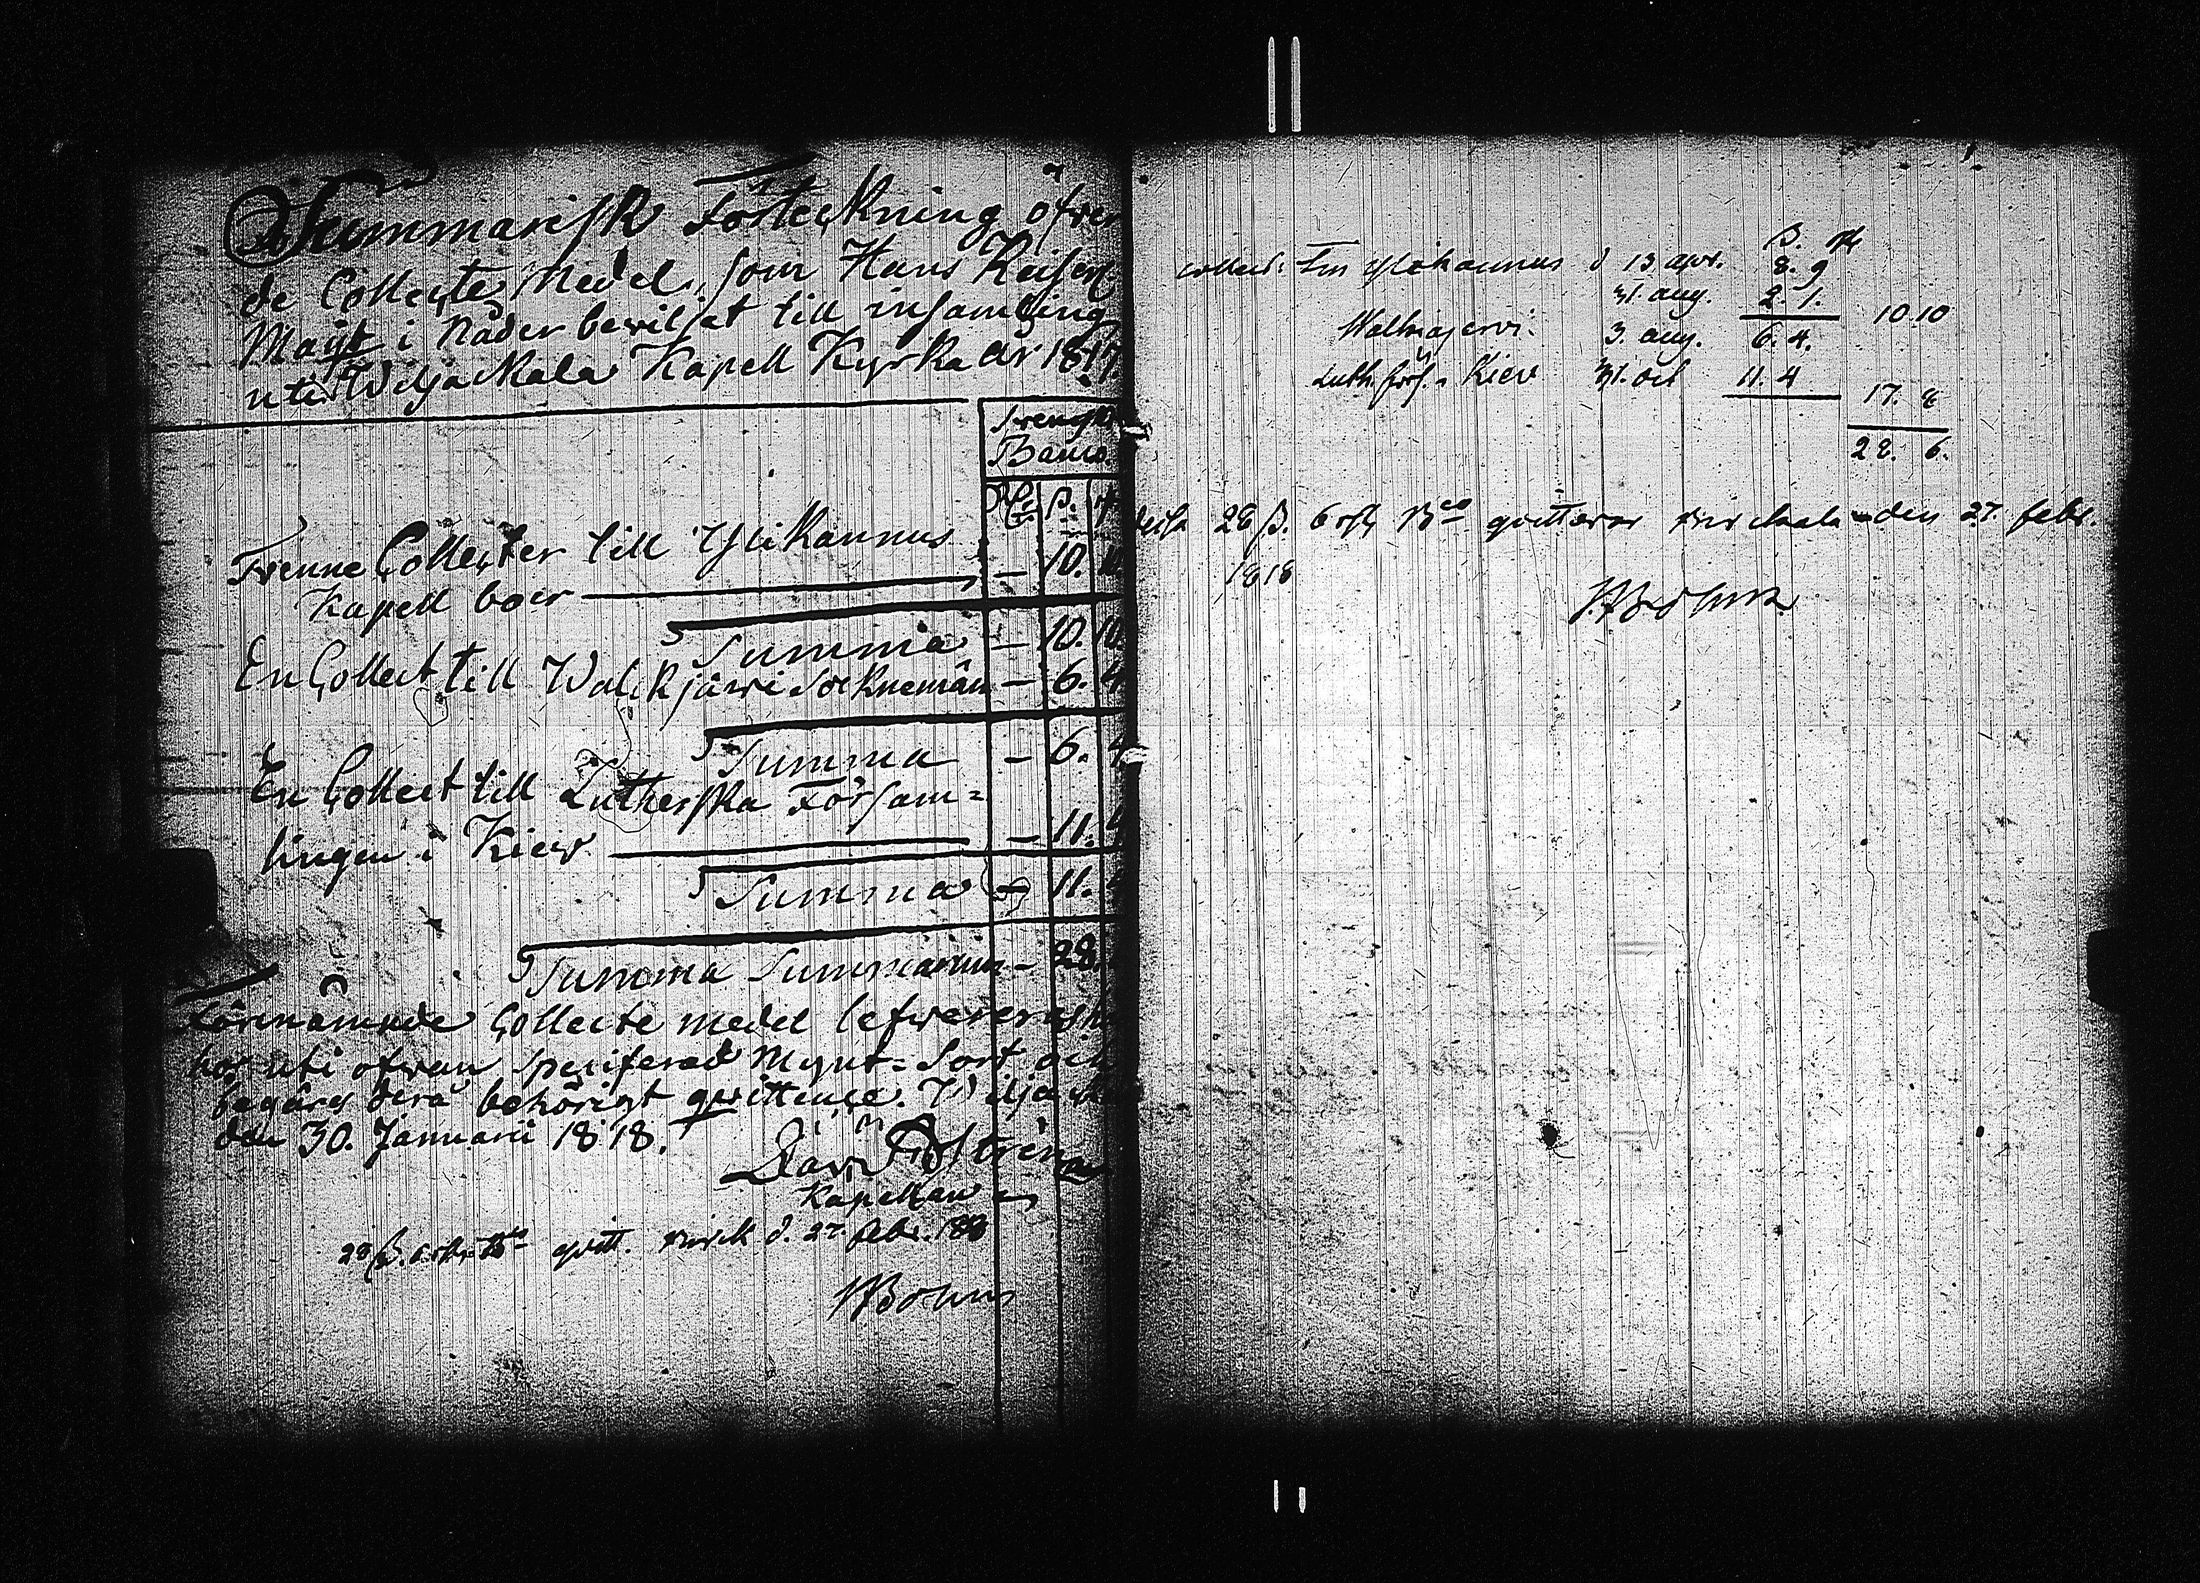 Summarisk Förteckning öfver
de Collecte Medel, som Hans Keiserl
Maijt i Nåder beviljat till insamling
uti Wiljackala Kapell Kyrka år 1817
Svensk
Banco.
Rd ß. rst
Trenne Collecter till Ylikannus
Kapell boer — 10. 10
Summa — 10. 10
En Collect till Walckjärvi Socknemän — 6. 4
Summa — 6. 4
En Collect till Lutherska Försam=
lingen i Kiew — 11. 4
Summa — 11. 4
Summa Summarum — 28.
Förenämnde Collecte medel lefvereras
här uti ofvan specificerad Mynt-Sort och
begäres derå behörigt qvittence. Wiljackala
den 30. Januarii 1818.
Kapellan
28 ß. 6 rst. Bco qvitt. d. 27. febr. 1818
Bohm
ß. rst
Collect. för Ylikannus d 13 apr. 8. 9
31. aug. 2. 1. 10 10
Walkiajervi. 3. aug. 6. 4.
Luth. förs. i Kiew 31. oct 11. 4
17. 8
28. 6.
28 ß. 6 rst Bco qvitteras den 27. febr.
1818
Bohm